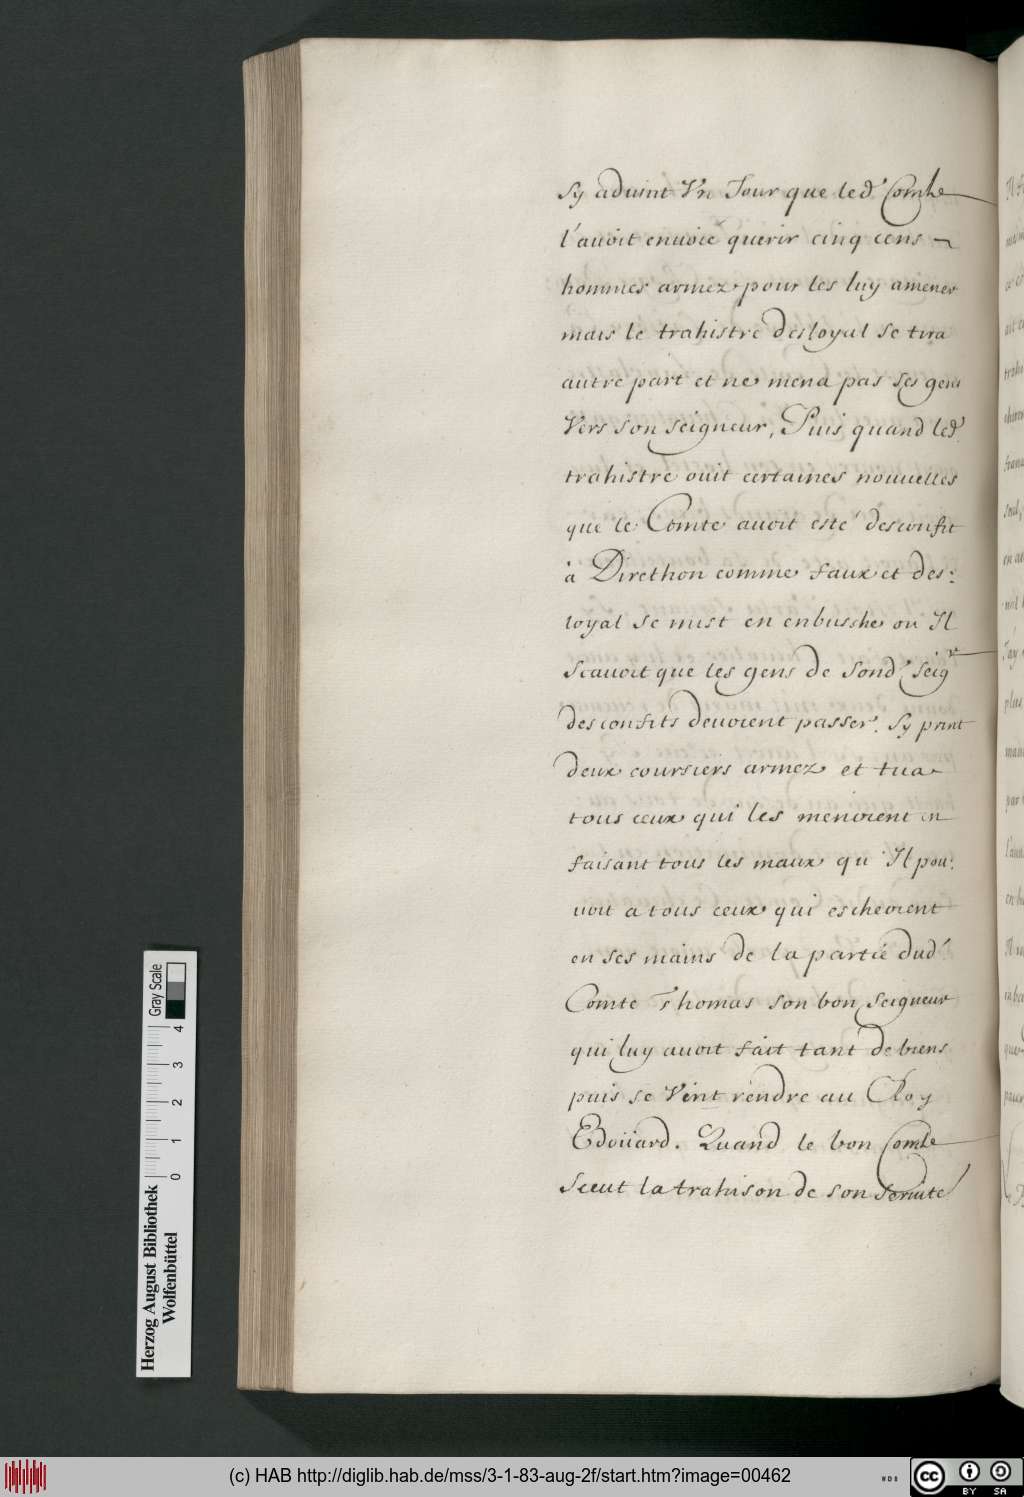 Sy aduint Vn Jour que led.t Comte
l'auoit enuoié querir cinq cens
hommes armez pour les luy amener
mais le trahistre desloyal se tira
autre part et ne mena pas ses gens
Vers son seigneur, Puis quand led.t
trahistre ouit certaines nouuelles
que le Comte auoit esté desconfit
à Direthon comme faux et des:
loyal se mist en enbusche ou Il
scauoit que les gens de sond.t seig.r
desconfits deuoient passer. Sy print
deux coursiers armez et tua
tous ceux qui les menoient en
faisant tous les maux qu'Il pou:
uoit a tous ceux qui escheoient
en ses mains de la partie dud.t
Comte Thomas son bon seigneur
qui luy auoit fait tant de biens
puis se Vint rendre au Roy
Edoüard. Quand le bon Comte
sceut la trahison de son
Herzog August Bibliothek
Wolfenbüttel
0 1 2 3 4
Gray Scale
(c) HAB http://diglib.hab.de/mss/3-1-83-aug-2f/start.htm?image=00462
cc
BY SA